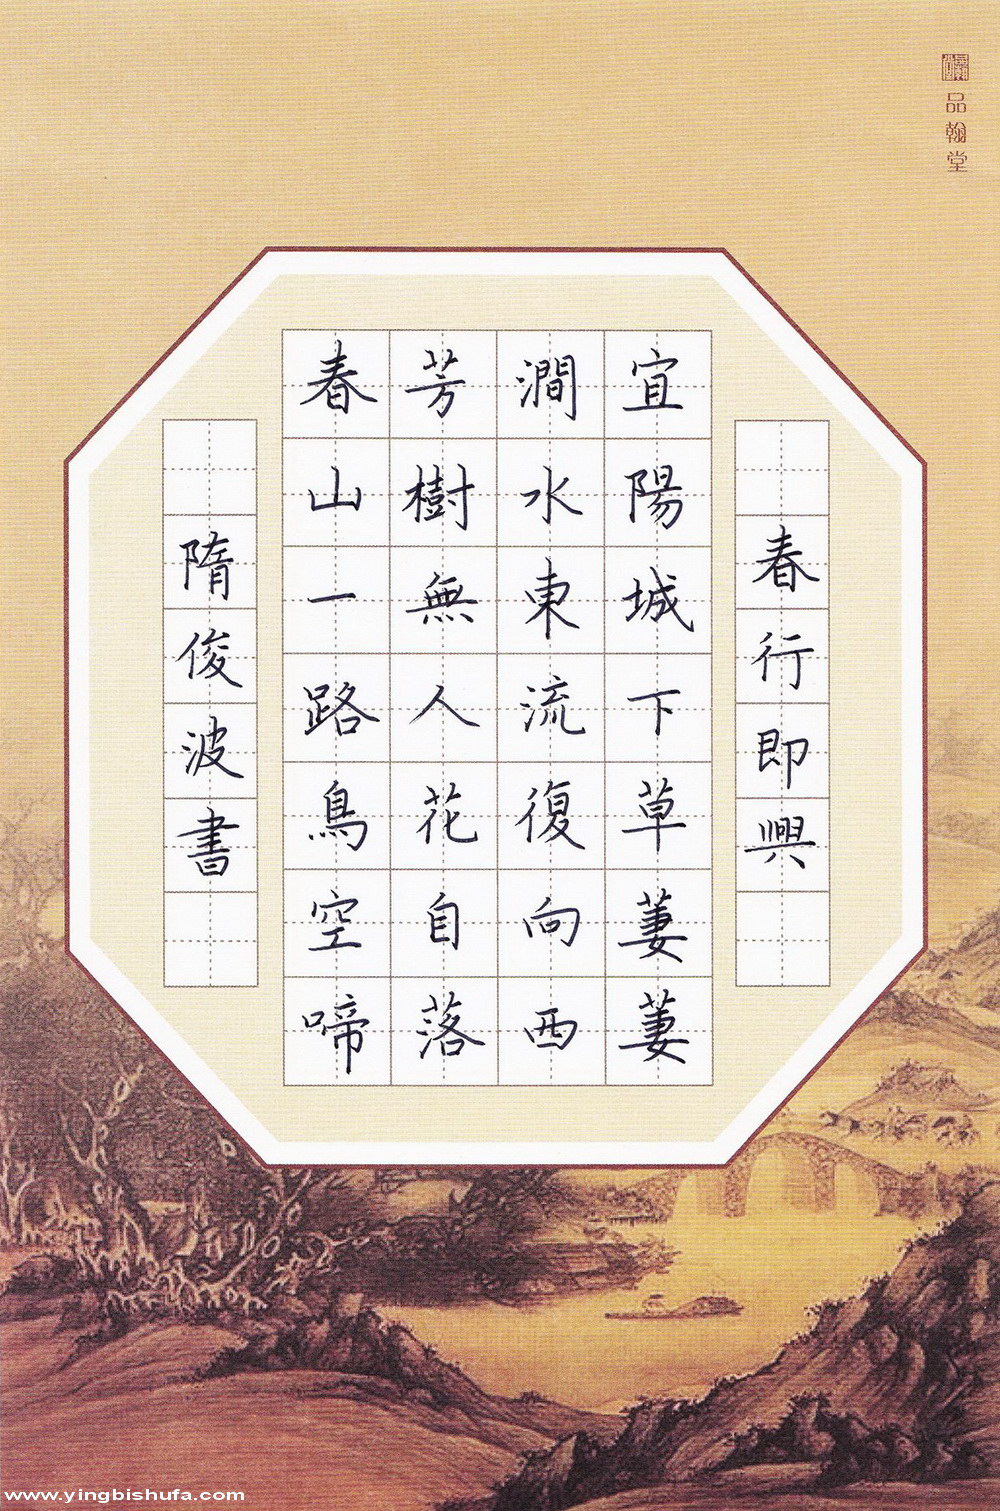 品翰堂
春行即興
宜陽城下草萋萋
澗水東流復向西
芳樹無人花自落
春山一路鳥空啼
隋俊波書
www.yingbishufa.com